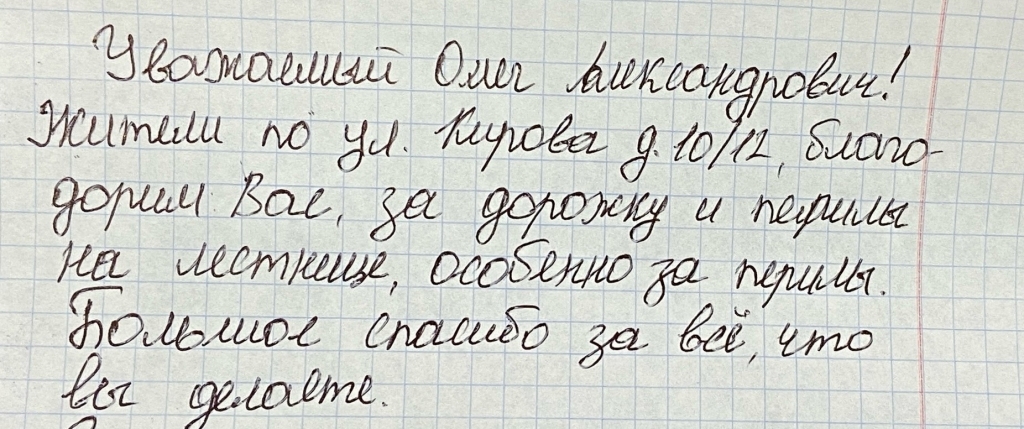 Уважаемый Олег Александрович!
Жители по ул. Кирова д. 10/12, благо-
дорим Вас, за дорожку и перилы
на лестнице, особенно за перилы.
Большое спасибо за всё, что
вы делаете.